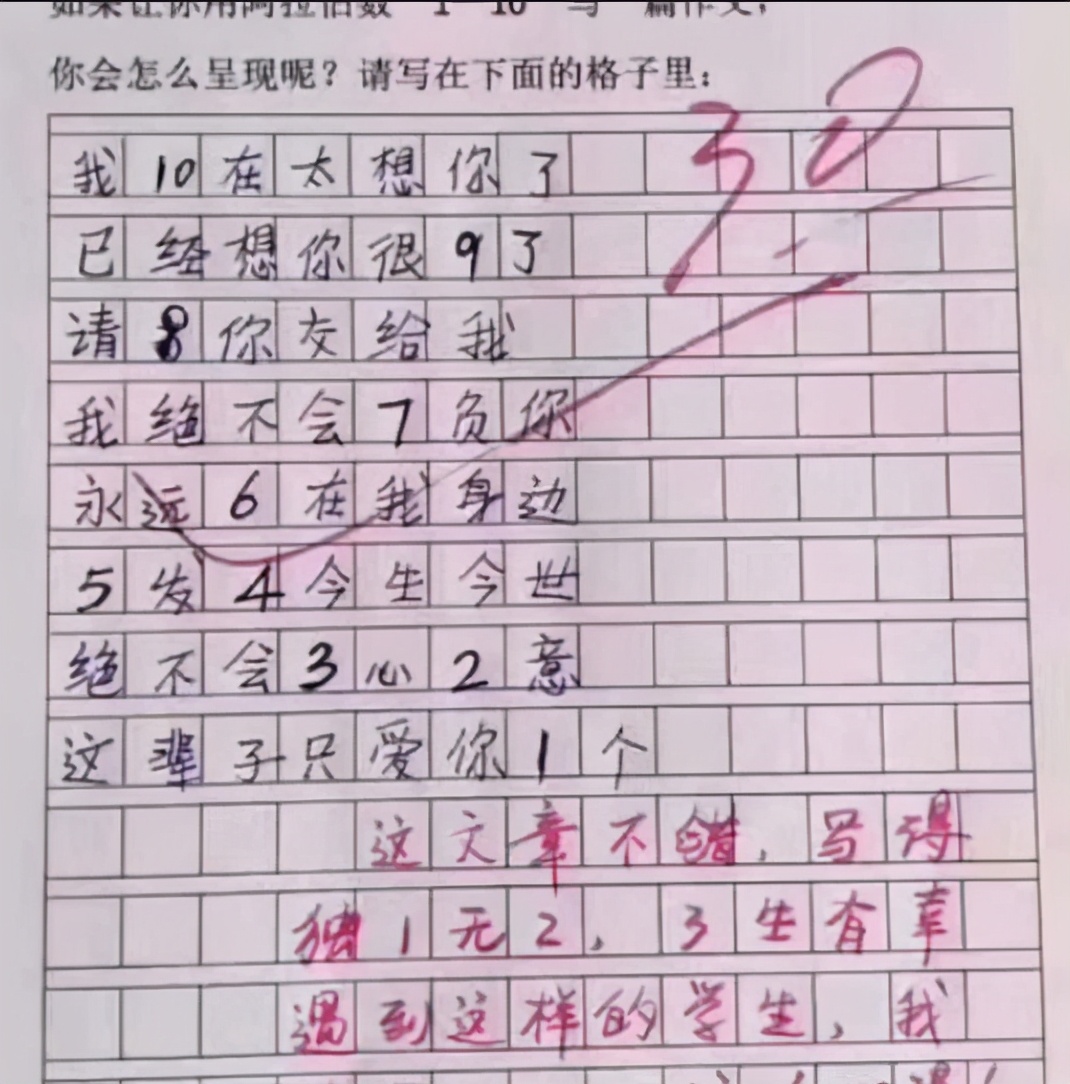 你会怎么呈现呢?请写在下面的格子里:
我10在太想你了
已经想你很9了
请8你交给我
我绝不会7负你
永远6在我身边
5发4今生今世
绝不会3心2意
这辈子只爱你1个
这文章不错,写得
独1无2,3生有幸
遇到这样的学生,我